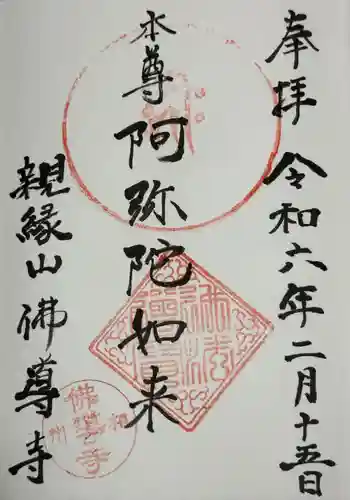 奉拝 令和六年二月十五日
本尊 阿弥陀如来
親縁山 佛導寺